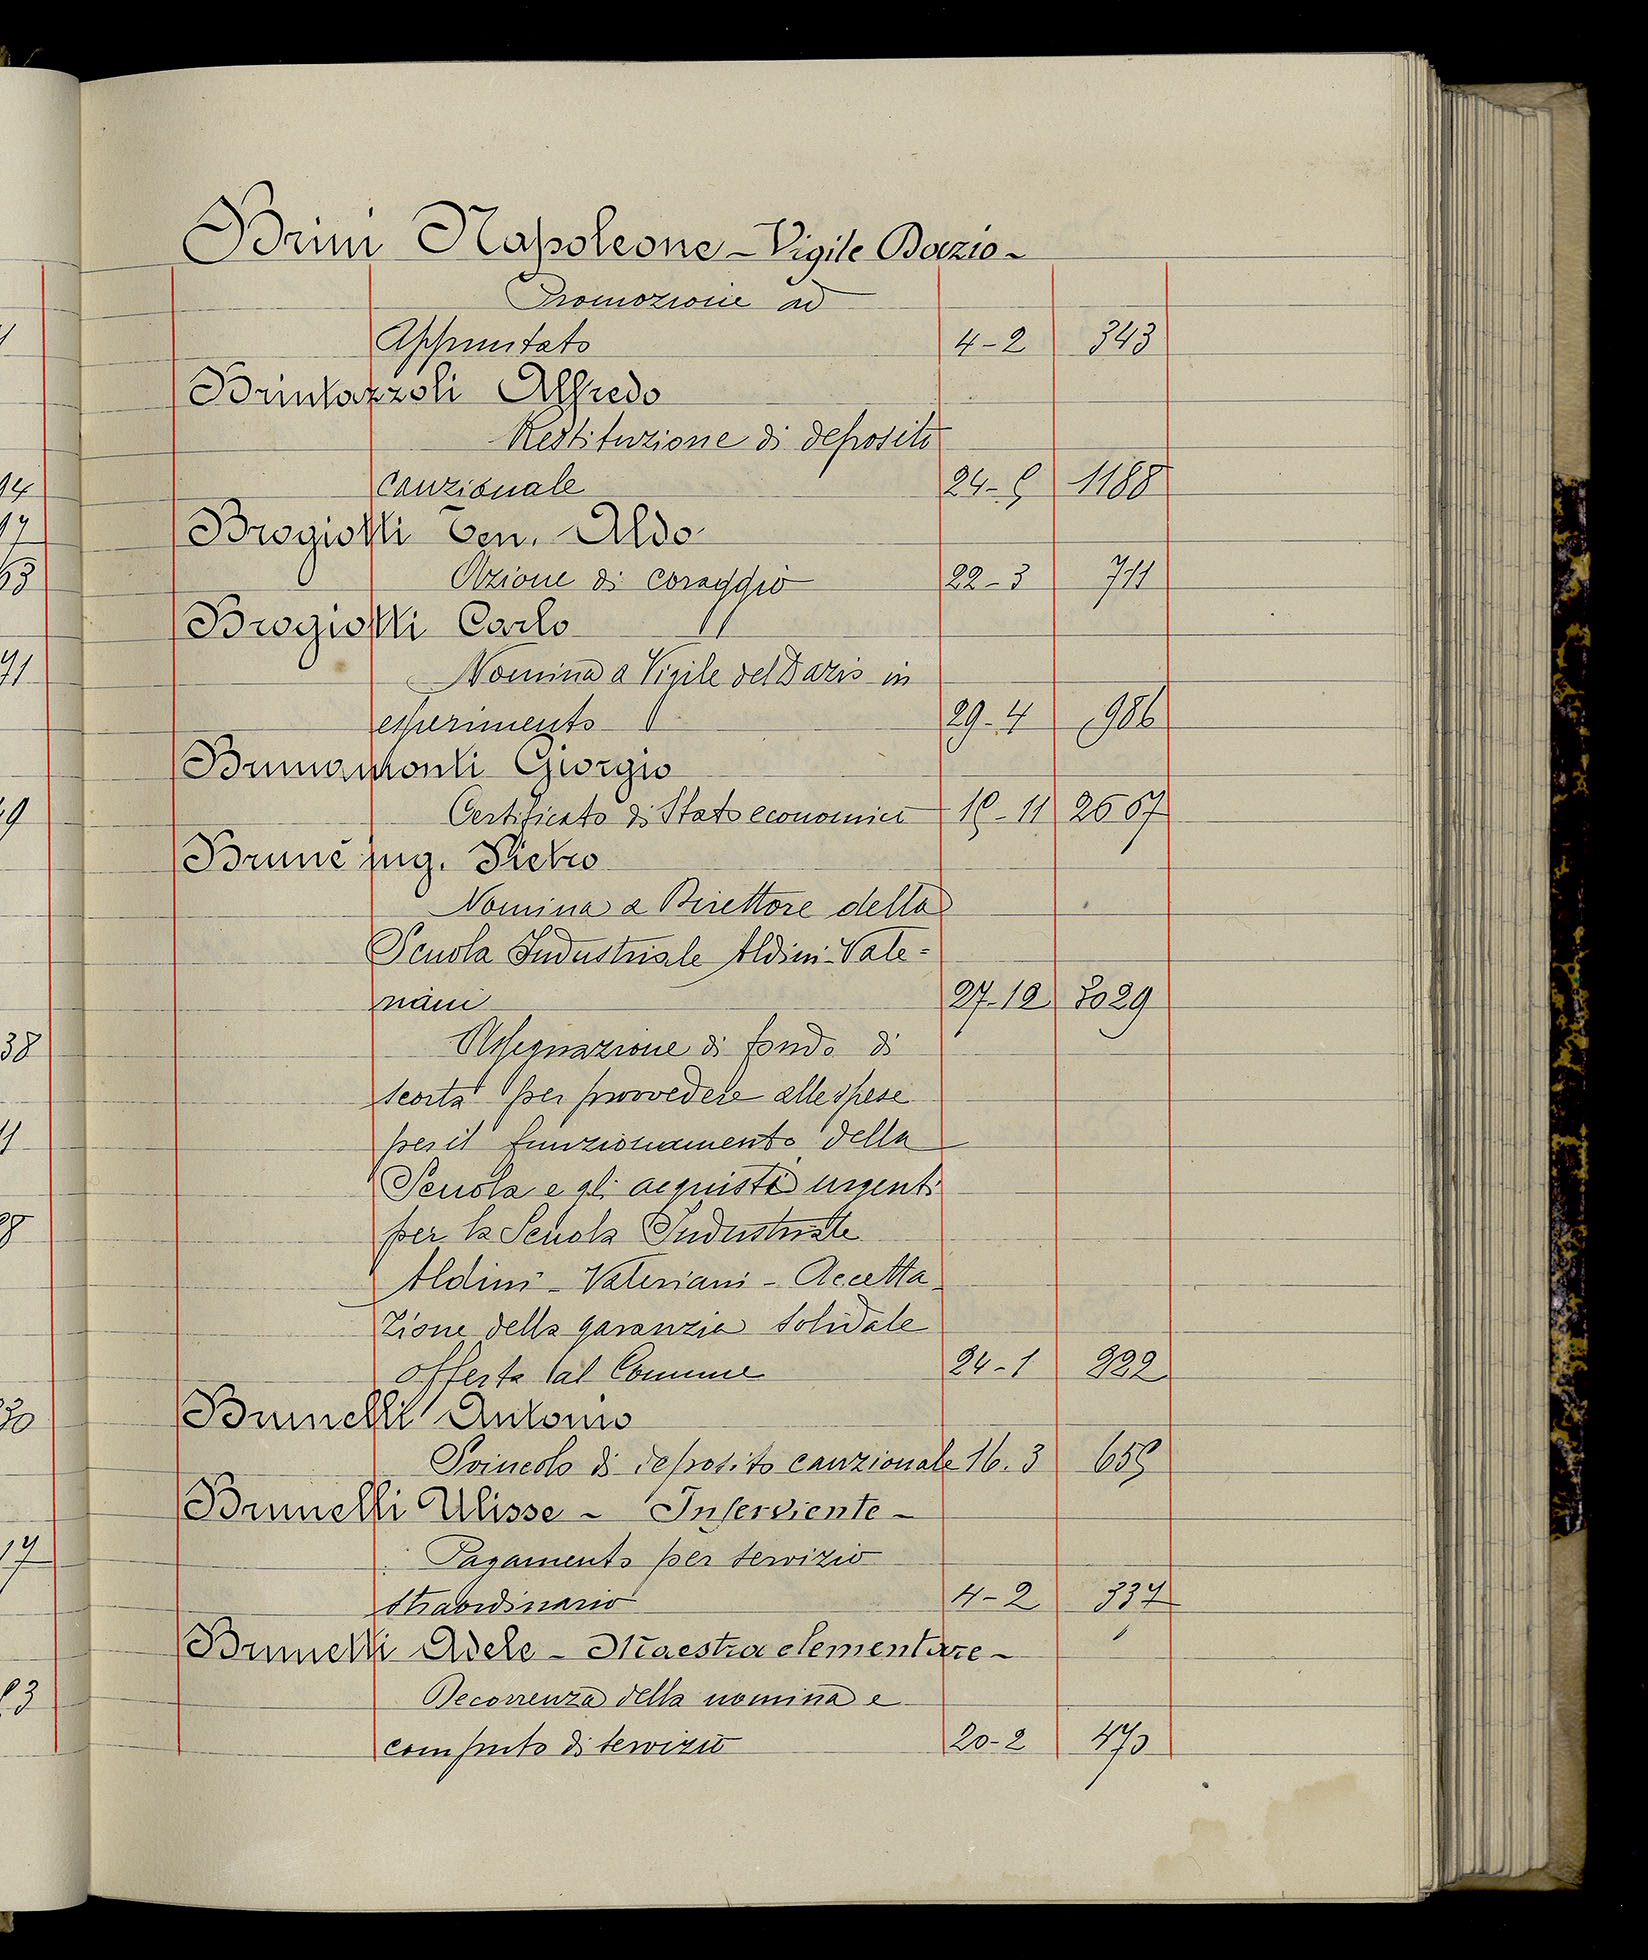 Brini Napoleone - Vigile Dazio -
Promozione ad
Appuntato 4-2 343
Brintazzoli Alfredo
Restituzione di deposito
cauzionale 24-5 1188
Brogiotti Ten. Aldo
Azione di coraggio 22-3 711
Brogiotti Carlo
Nomina a Vigile del Dazio in
esperimento 29-4 986
Brunamonti Giorgio
Certificato di Stato economico 15-11 2667
Brunè ing. Pietro
Nomina a Direttore della
Scuola Industriale Aldini-Vale=
riani 27-12 3029
Assegnazione di fondo di
scorta per provvedere alle spese
per il funzionamento della
Scuola e gli acquisti urgenti
per la Scuola Industriale
Aldini-Valeriani - Accetta-
zione della garanzia solidale
offerta al Comune 24-1 222
Brunelli Antonio
Svincolo di deposito cauzionale 16.3 655
Brunelli Ulisse - Inserviente -
Pagamento per servizio
straordinario 4-2 337
Brunetti Adele - Maestra elementare -
Decorrenza della nomina e
computo di servizio 20-2 470
94
17
63
71
49
38
11
28
30
17
53